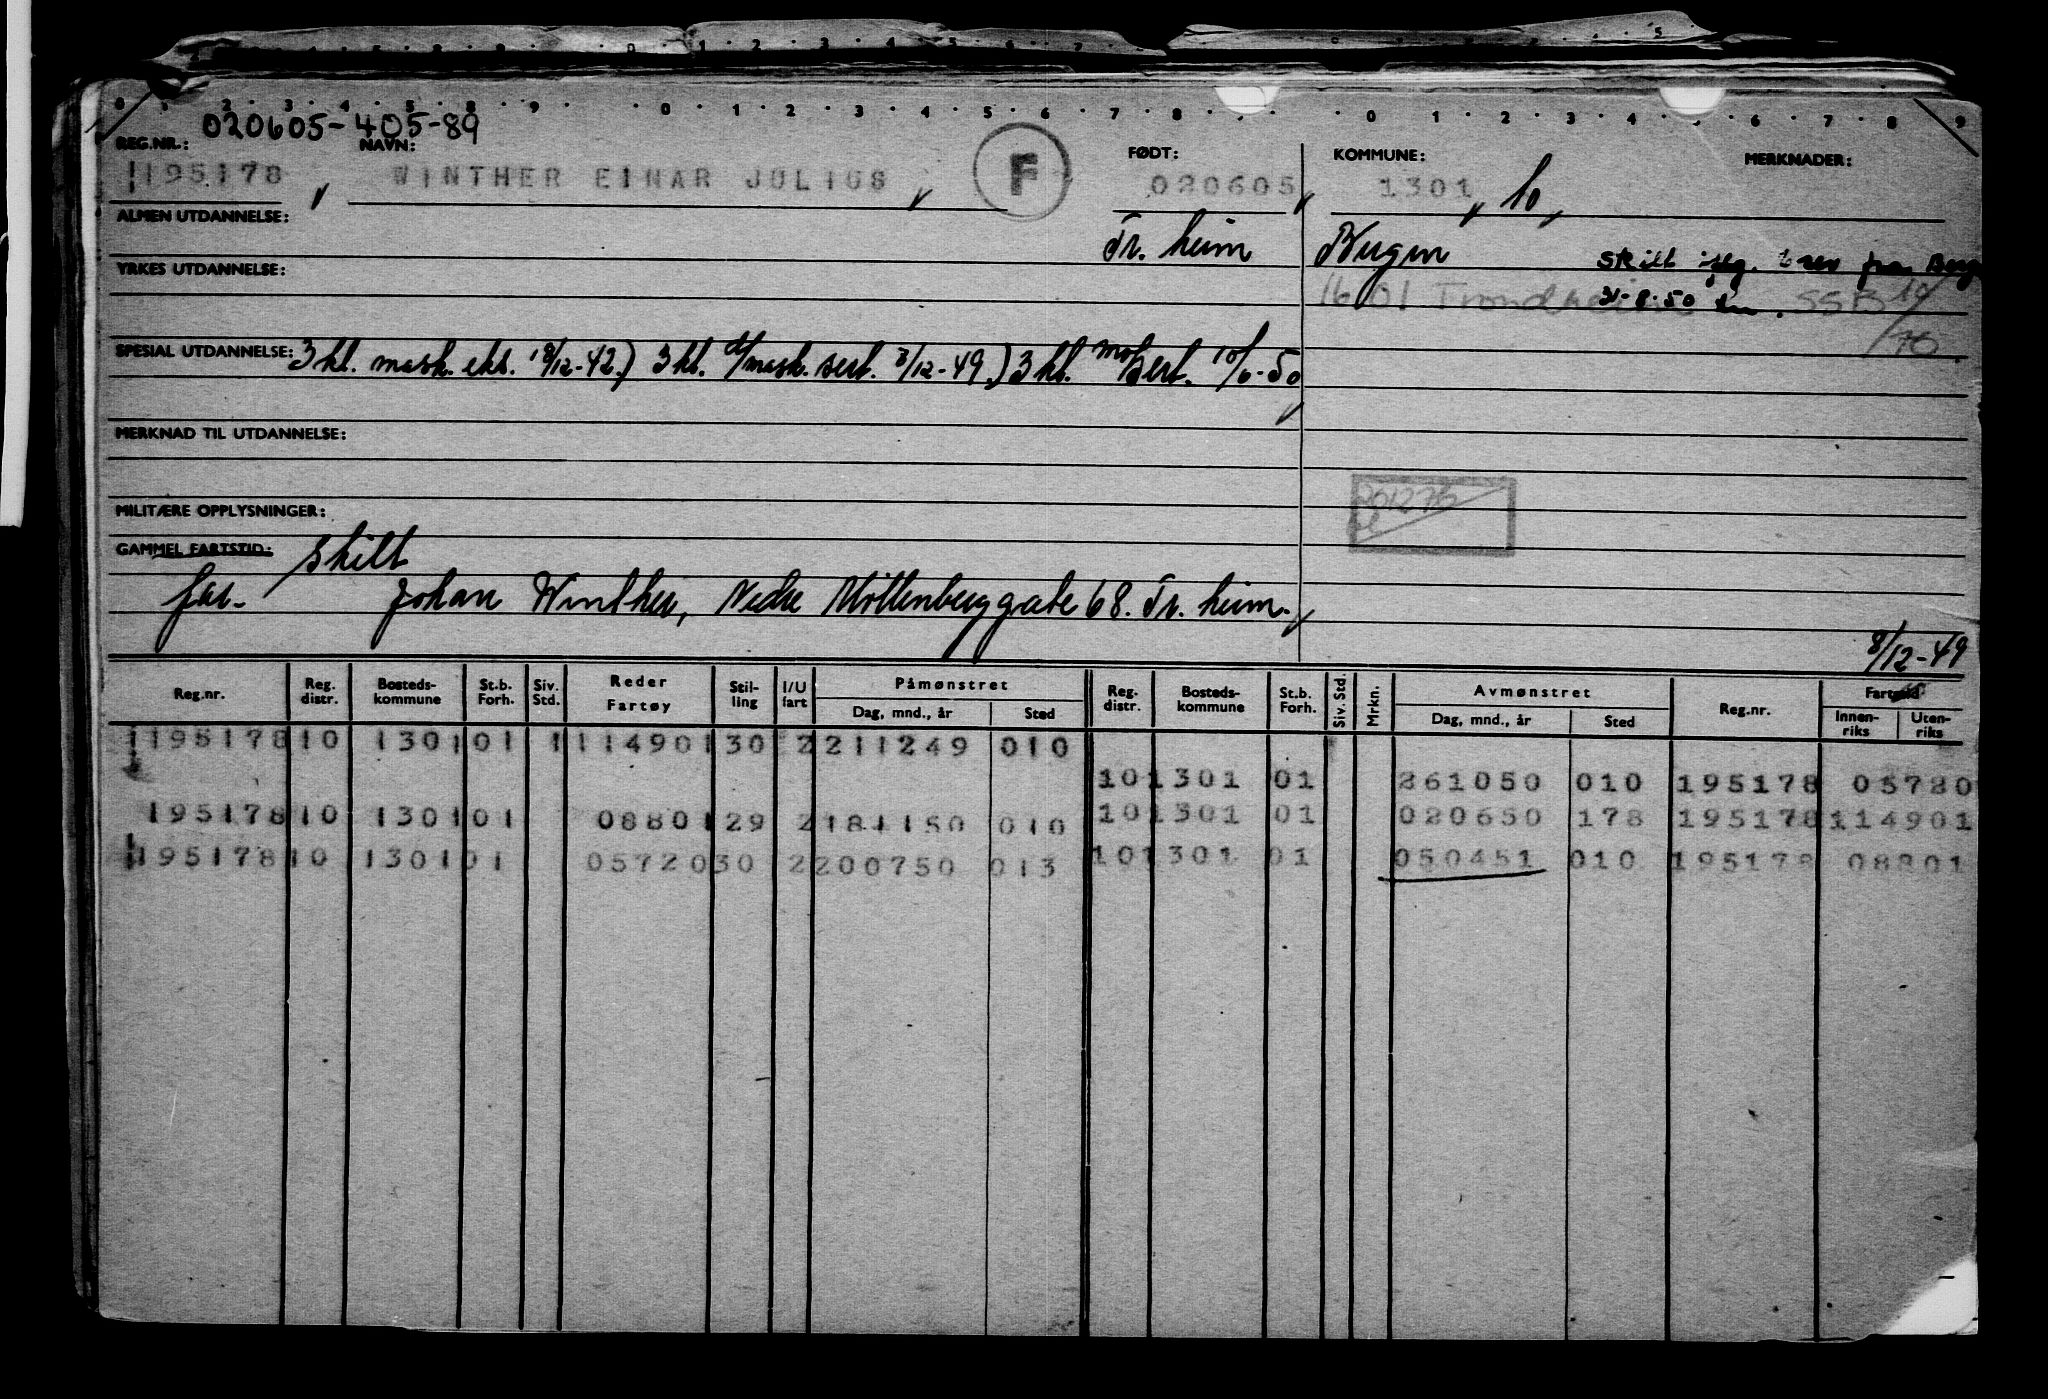 020605-405-89
REG.NR.: NAVN: FØDT: KOMMUNE: MERKNADER:
195178 WINTHER EINAR JULIUS F 020605 1301 10
ALMEN UTDANNELSE: Tr. heim Bergen
YRKES UTDANNELSE: skilt iflg. brev fra Berg
1601 Trondheim 31-8-50 SSB 10/70
SPESIAL UTDANNELSE: 3 kl. mask. eks. 18/12-42.) 3 kl. d/mask. sert. 3/12-49.) 3 kl. mo sert. 10/6-50
MERKNAD TIL UTDANNELSE:
201275
MILITÆRE OPPLYSNINGER:
GAMMEL FARTSTID: skilt
far- Johan Winther, Nedre Möllenberggate 68. Tr. heim.
8/12-49
Reg.nr. Reg. distr. Bosteds- kommune St.b. Forh. Siv. Std. Reder Fartøy Stil- ling I/U fart Påmønstret Dag, mnd., år Sted Reg. distr. Bosteds- kommune St.b. Forh. Siv. Std. Mrkn. Avmønstret Dag, mnd., år Sted Reg.nr. Fartøy Innen- riks Uten- riks
195178 10 1301 01 1 114901 30 2 211249 010
10 1301 01 261050 010 195178 05720
195178 10 1301 01 08801 29 2 181150 010 10 1301 01 020650 178 195178 114901
195178 10 1301 01 05720 30 2 200750 013 10 1301 01 050451 010 195178 08801